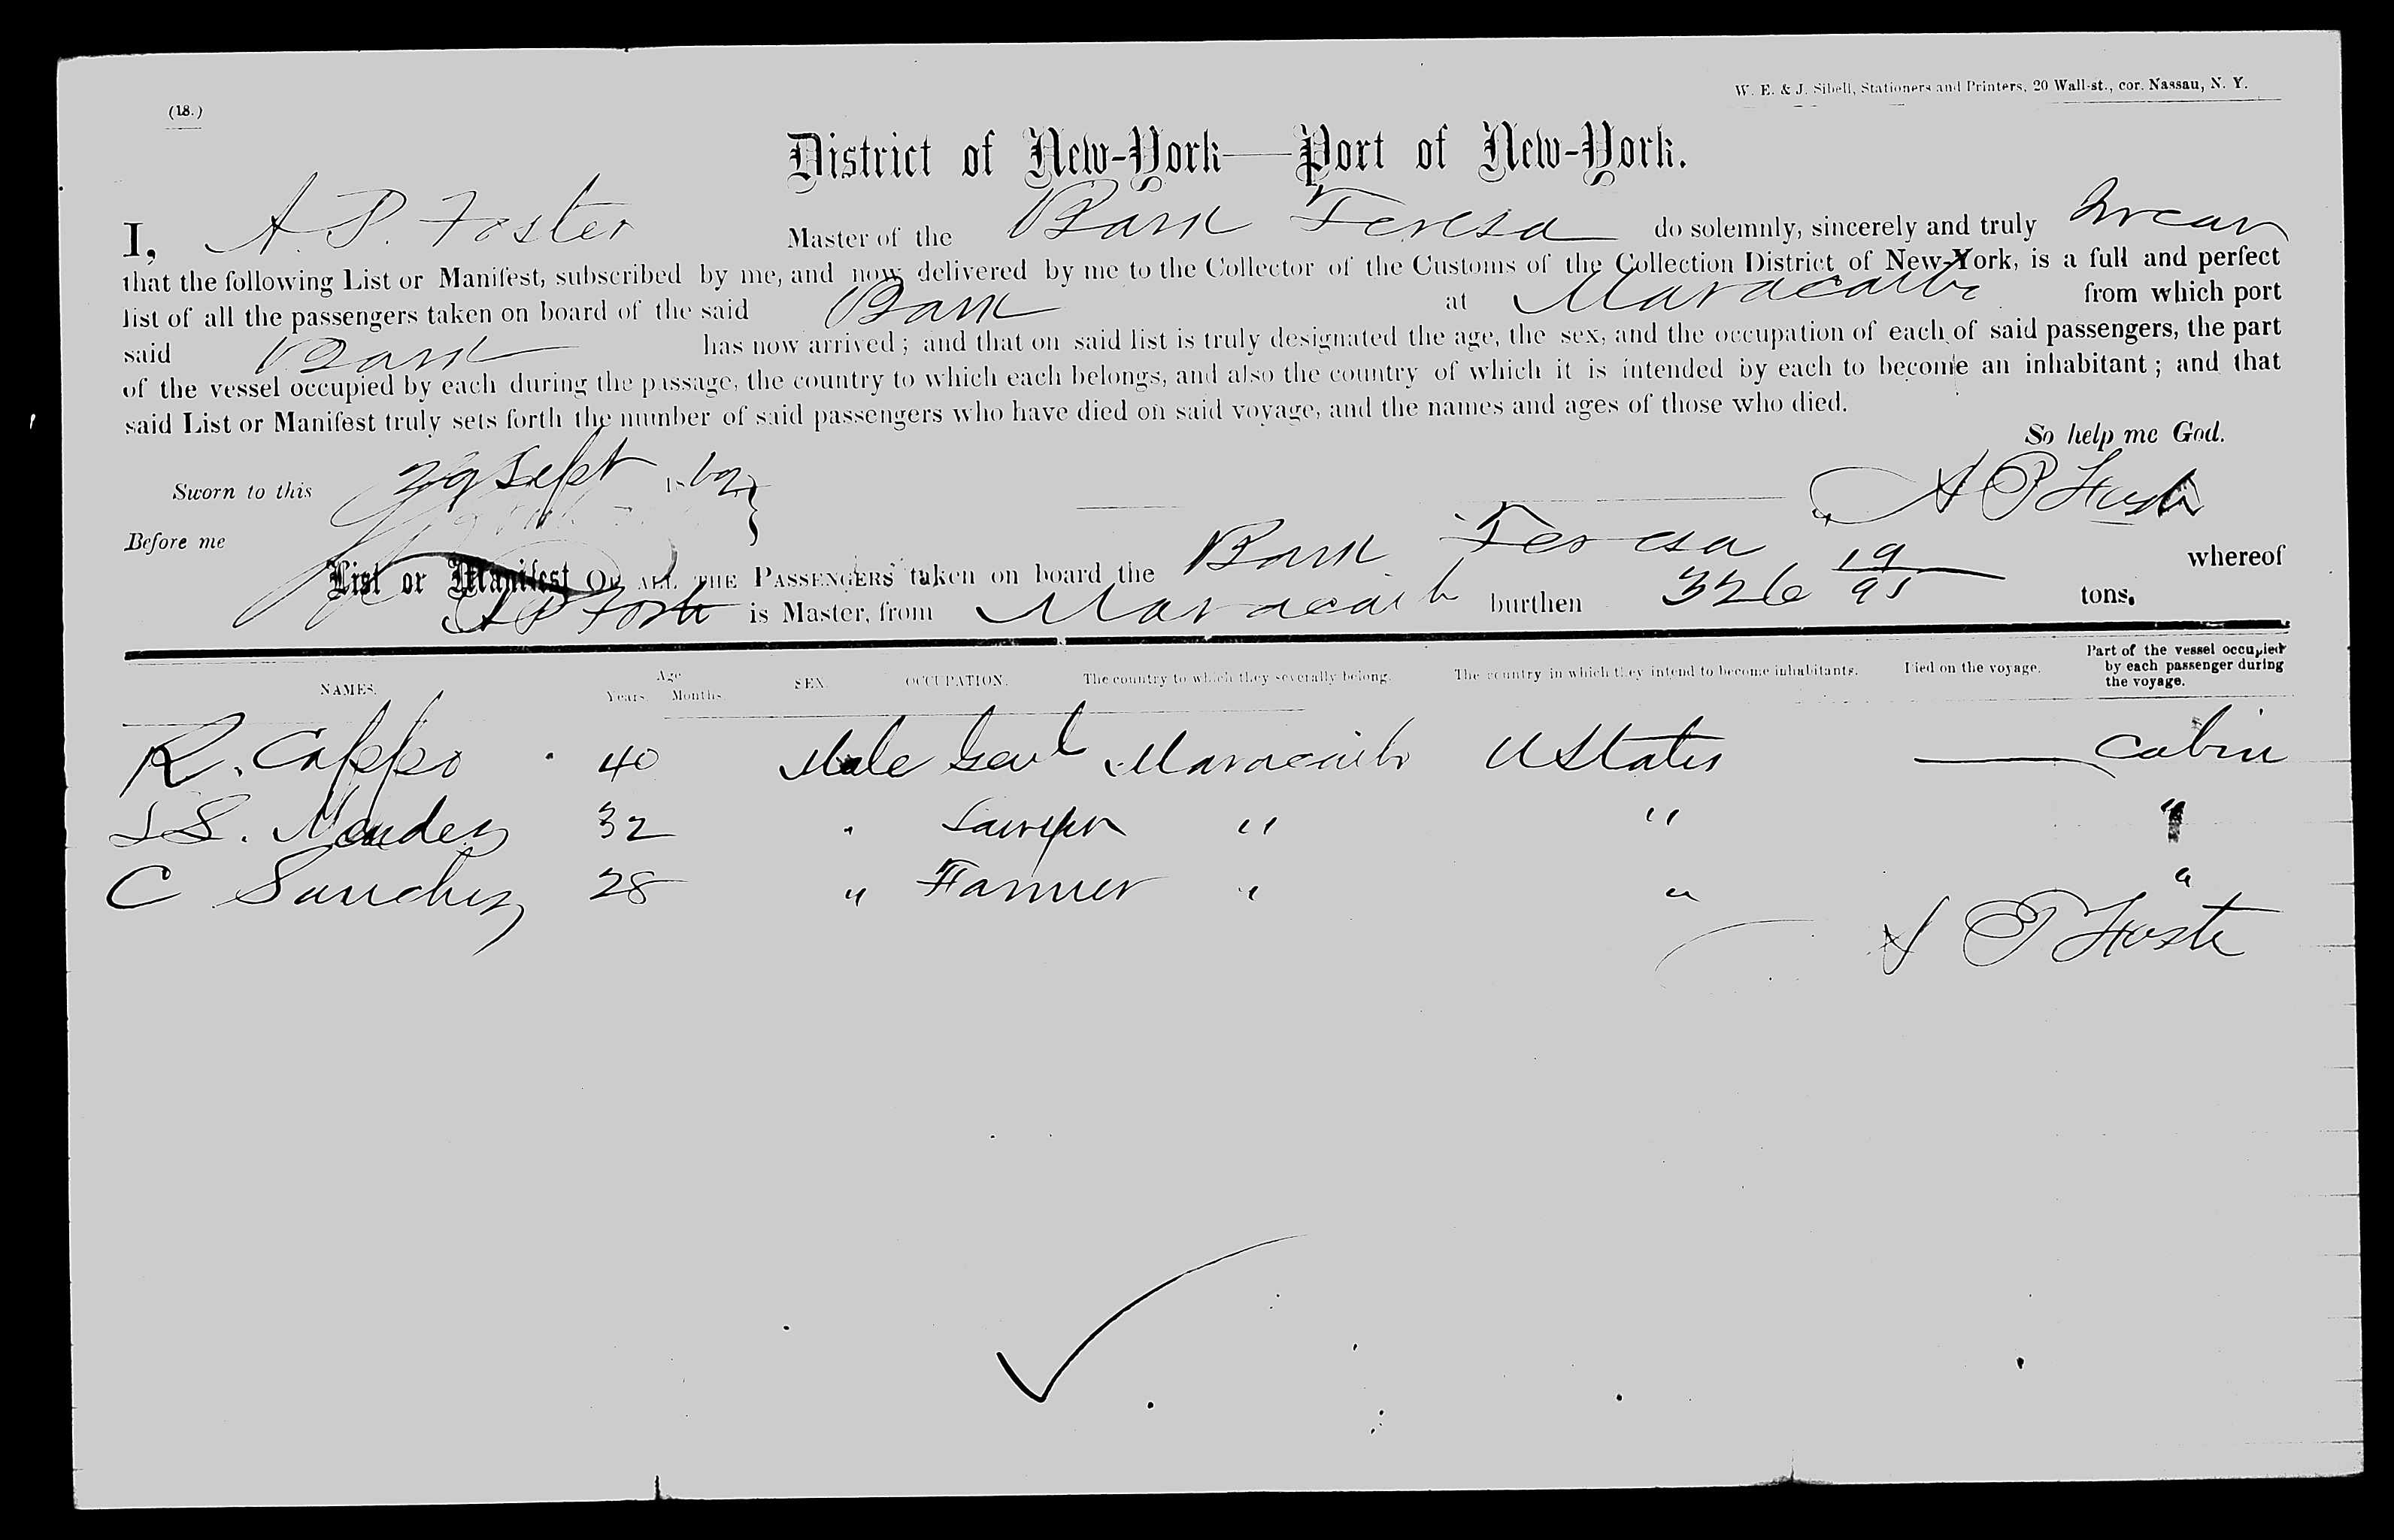 (18.)
W. E. & J. Sibell, Stationers and Printers, 20 Wall-st., cor. Nassau, N. Y.
District of New-York—Port of New-York.
I, A. P. Foster Master of the Bark Teresa do solemnly, sincerely and truly swear
that the following List or Manifest, subscribed by me, and now delivered by me to the Collector of the Customs of the Collection District of New-York, is a full and perfect
list of all the passengers taken on board of the said Bark at Maracaibo from which port
said Bark has now arrived; and that on said list is truly designated the age, the sex, and the occupation of each of said passengers, the part
of the vessel occupied by each during the passage, the country to which each belongs, and also the country of which it is intended by each to become an inhabitant; and that
said List or Manifest truly sets forth the number of said passengers who have died on said voyage, and the names and ages of those who died.
So help me God.
Sworn to this 29 Sept 1862 A P Foster
Before me
List or Manifest OF ALL THE PASSENGERS taken on board the Bark Teresa whereof
A P Foster is Master, from Maracaibo burthen 326 19/95 tons.
NAMES. Age Years. Months. SEX. OCCUPATION. The country to which they severally belong. The country in which they intend to become inhabitants. Died on the voyage. Part of the vessel occupied by each passenger during the voyage.
R. Cappo 40 Male Gent Maracaibo U States — Cabin
S S. Mendez 32 " Lawyer " " "
C Sanchez 28 " Farmer " " "
A P Foster